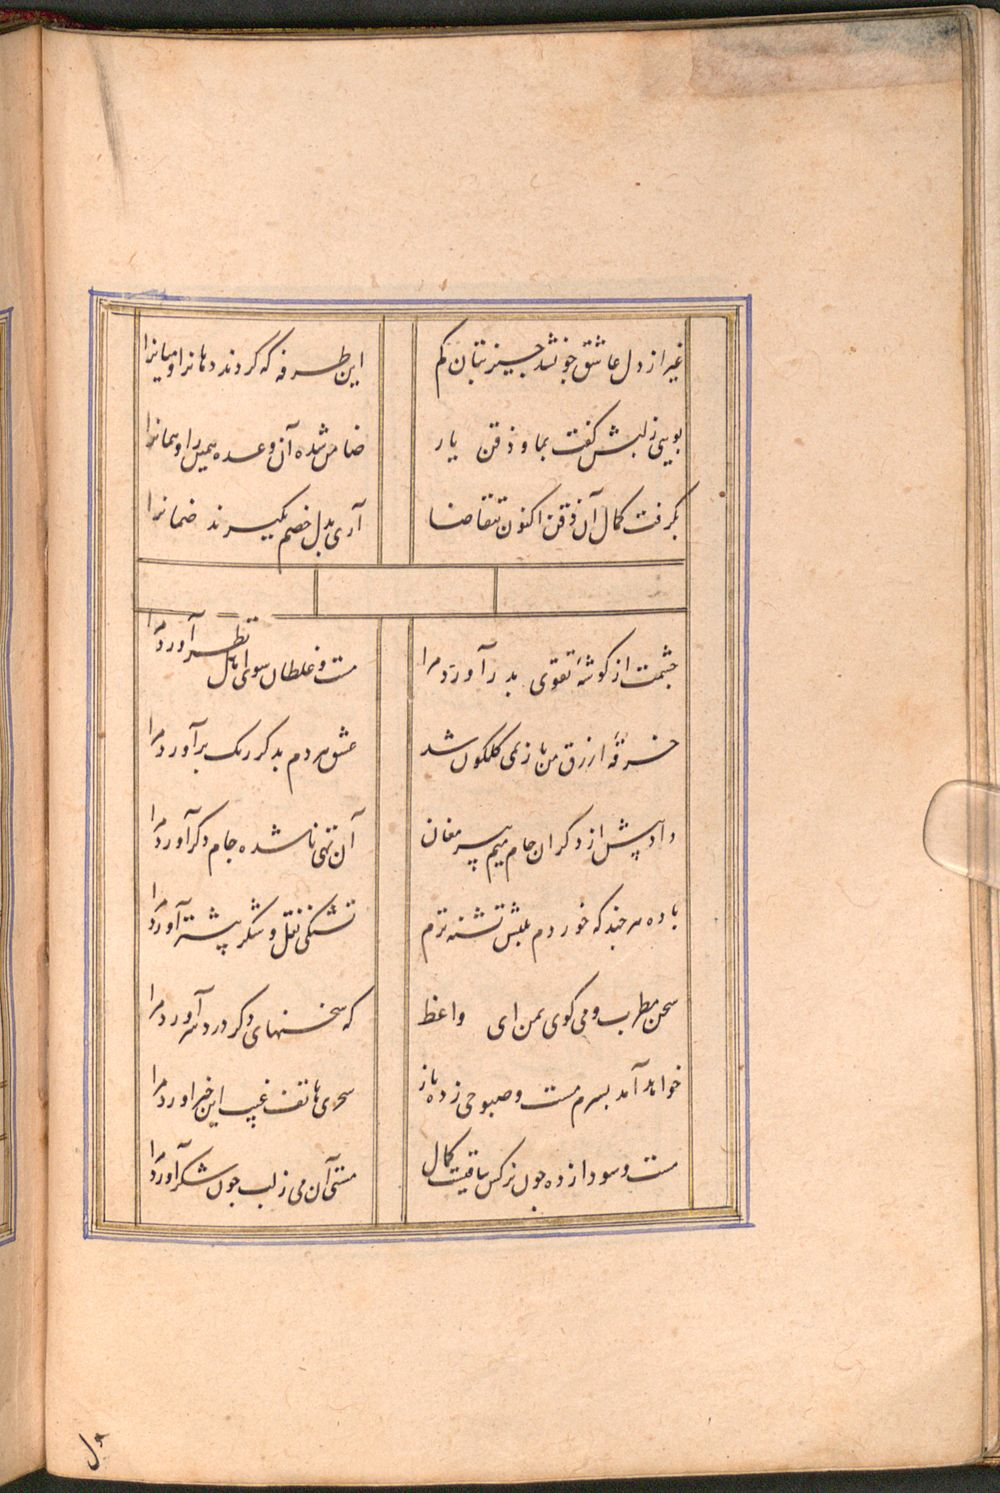 غیر از دل عاشق جو نشد چیز بتان کم
این طرفه که کردند دهانرا و میانرا
بویی ز لبش گفت بما و ذقن یار
ضامن شده آن وعده همین را و همانرا
بگرفت کمال آن ذقن اکنون بتقاضا
آری بدل خصم بگیرند ضمانرا
چشمت از گوشهٔ تقوی بدر آورد مرا
مست و غلطان سوی اهل نظر آورد مرا
خرقهٔ ازرق من باز بمی گلگون شد
عشق هر دم بدگر رنگ برآورد مرا
داد پیش از دگران جام میم پیر مغان
آن تهی ناشده جام دگر آورد مرا
باده هر چند که خوردم ز لبش تشنه ترم
تشنگی نقل و شکر بیشتر آورد مرا
سخن مطرب و می گوی بمن ای واعظ
که سخنهای دگر درد سر آورد مرا
خواهد آمد بسرم مست و صبوحی زده باز
سحری هاتف غیب این خبر آورد مرا
مست و سودازده چون نرگس ساقیت کمال
مستی آن می ز لب چون شکر آورد مرا